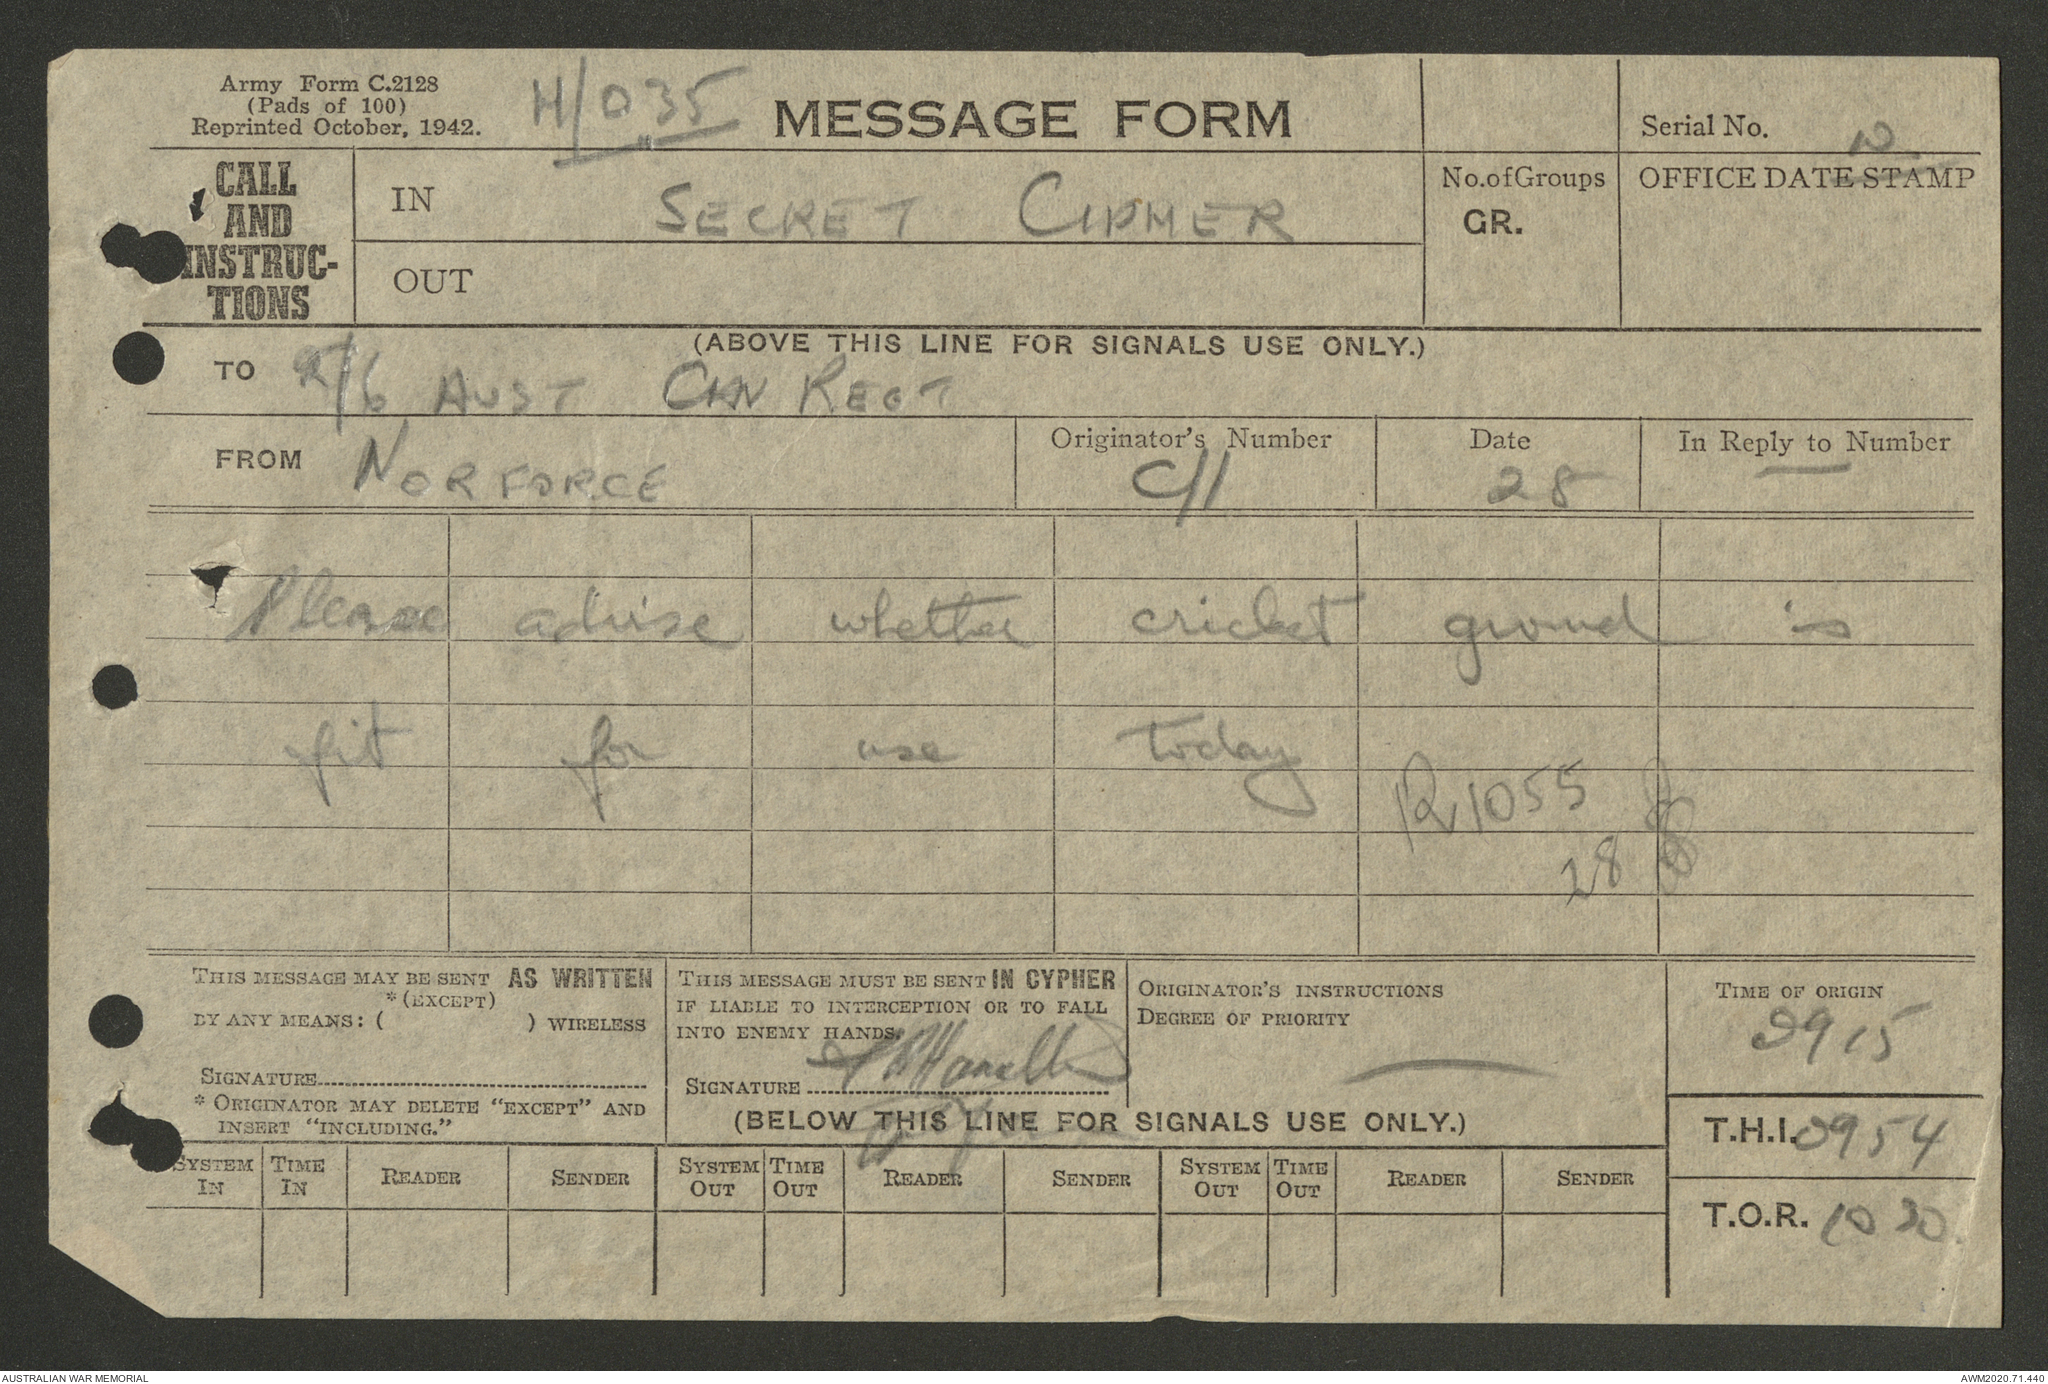 Army Form C.2128
(Pads of 100)
Reprinted October, 1942.
H/035
MESSAGE FORM
Serial No.
CALL
AND
INSTRUC-
TIONS
IN SECRET CIPHER
OUT
No.ofGroups
GR.
OFFICE DATE STAMP
(ABOVE THIS LINE FOR SIGNALS USE ONLY.)
TO 2/6 AUST CAV REGT
FROM NORFORCE
Originator's Number
C11
Date
28
In Reply to Number
—
Please advise whether cricket ground is
fit for use today
R 1055
28
THIS MESSAGE MAY BE SENT AS WRITTEN
*(EXCEPT)
BY ANY MEANS: ( ) WIRELESS
SIGNATURE
* ORIGINATOR MAY DELETE "EXCEPT" AND
INSERT "INCLUDING."
THIS MESSAGE MUST BE SENT IN CYPHER
IF LIABLE TO INTERCEPTION OR TO FALL
INTO ENEMY HANDS.
SIGNATURE
ORIGINATOR'S INSTRUCTIONS
DEGREE OF PRIORITY
—
TIME OF ORIGIN
0915
(BELOW THIS LINE FOR SIGNALS USE ONLY.)
T.H.I. 0954
T.O.R. 1030
SYSTEM IN TIME IN READER SENDER SYSTEM OUT TIME OUT READER SENDER SYSTEM OUT TIME OUT READER SENDER
AUSTRALIAN WAR MEMORIAL
AWM2020.71.440